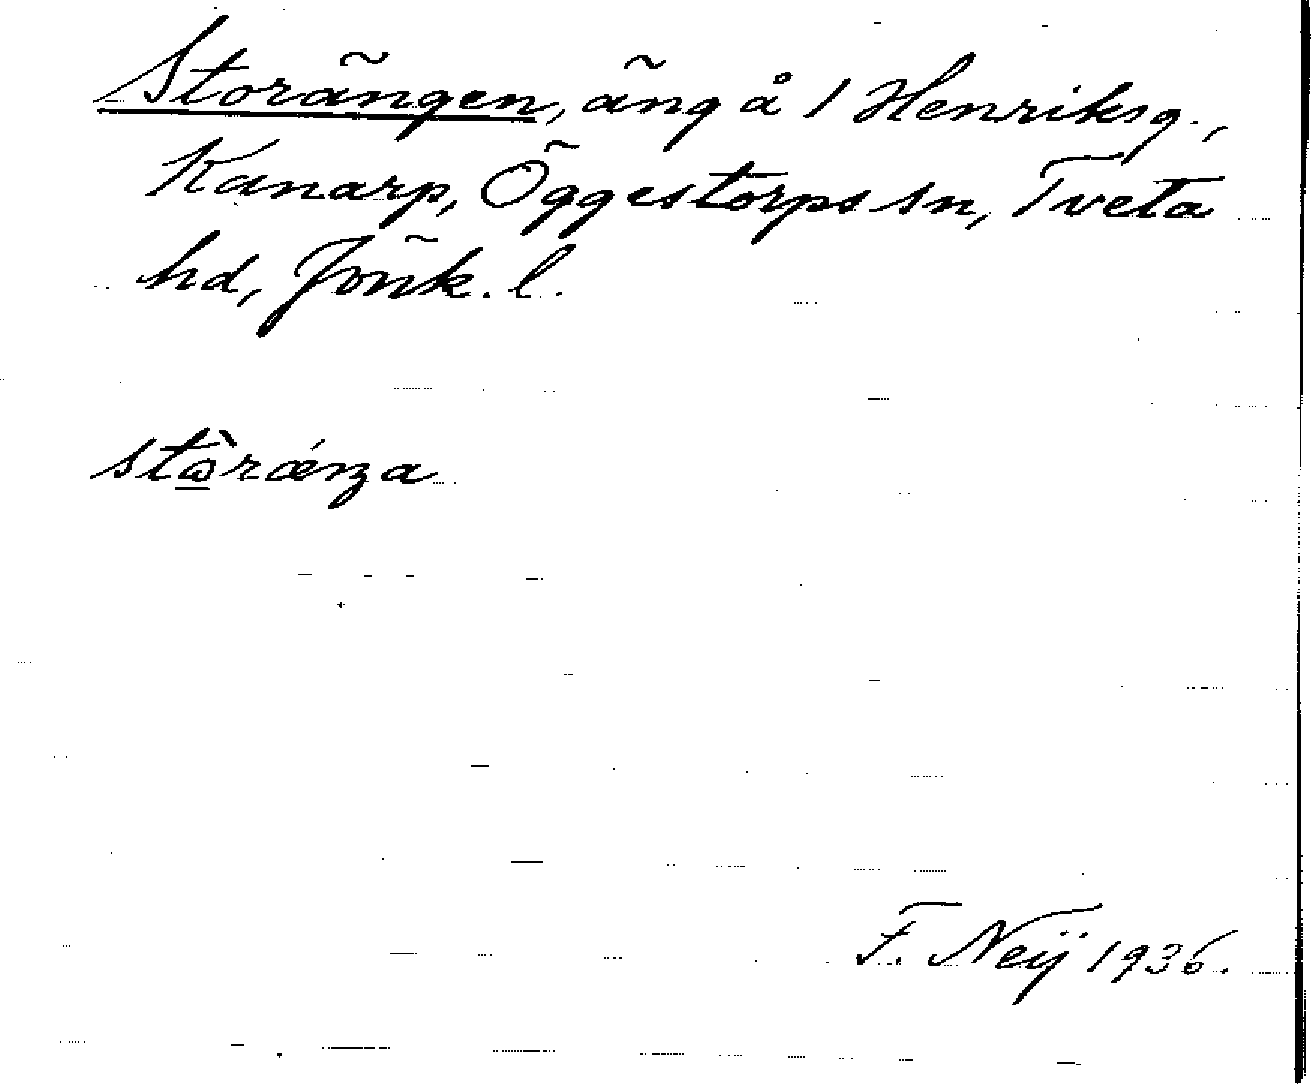 Storängen, äng å 1 Henriksg.,
Kanarp, Öggestorps sn, Tveta
hd, Jönk. l.
stɷ̀rǽŋa
F. Neij 1936.